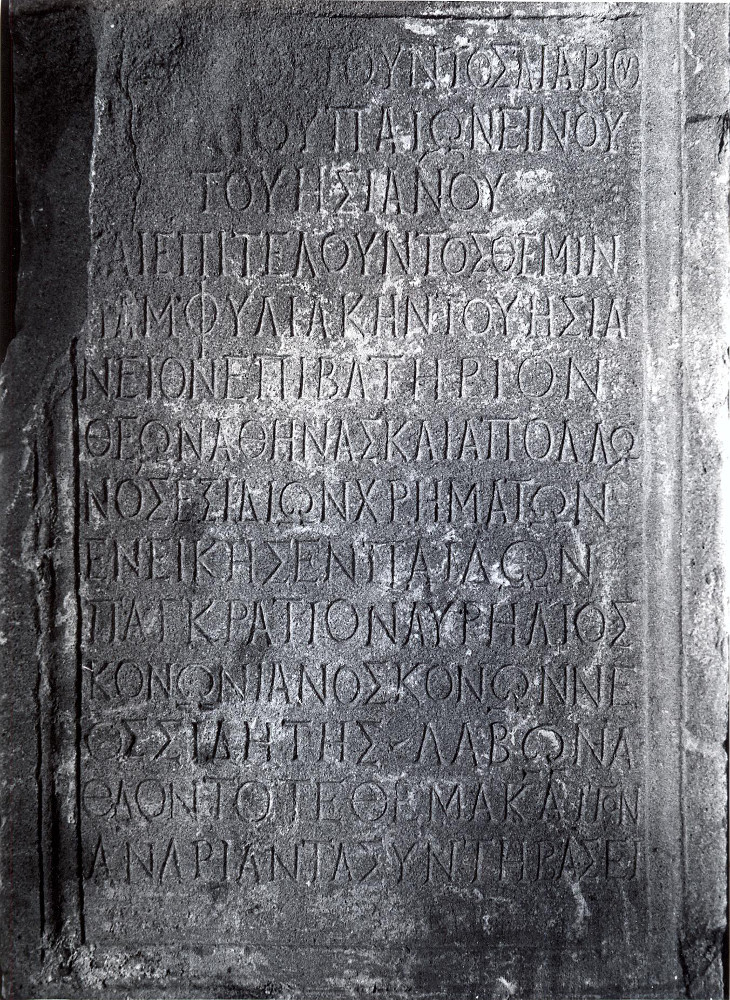 ΘΕΤΟΥΝΤΟΣΔΙΑΒΙΟΥ
ΚΙΟΥΠΑΙΩΝΕΙΝΟΥ
ΤΟΥΗΣΙΑΝΟΥ
ΚΑΙΕΠΙΤΕΛΟΥΝΤΟΣΘΕΜΙΝ
ΠΑΜΦΥΛΙΑΚΗΝΤΟΥΗΣΙΑ
ΝΕΙΟΝΕΠΙΒΑΤΗΡΙΟΝ
ΘΕΩΝΑΘΗΝΑΣΚΑΙΑΠΟΛΛΩ
ΝΟΣΕΞΙΔΙΩΝΧΡΗΜΑΤΩΝ
ΕΝΕΙΚΗΣΕΝΠΑΙΔΩΝ
ΠΑΓΚΡΑΤΙΟΝΑΥΡΗΛΙΟΣ
ΚΟΝΩΝΙΑΝΟΣΚΟΝΩΝΝΕ
ΟΣΣΙΔΗΤΗΣ ΛΑΒΩΝΑ
ΘΛΟΝΤΟΤΕΘΕΜΑΚΑΙΤΟΝ
ΑΝΔΡΙΑΝΤΑΣΥΝΤΗΒΑΣΕΙ